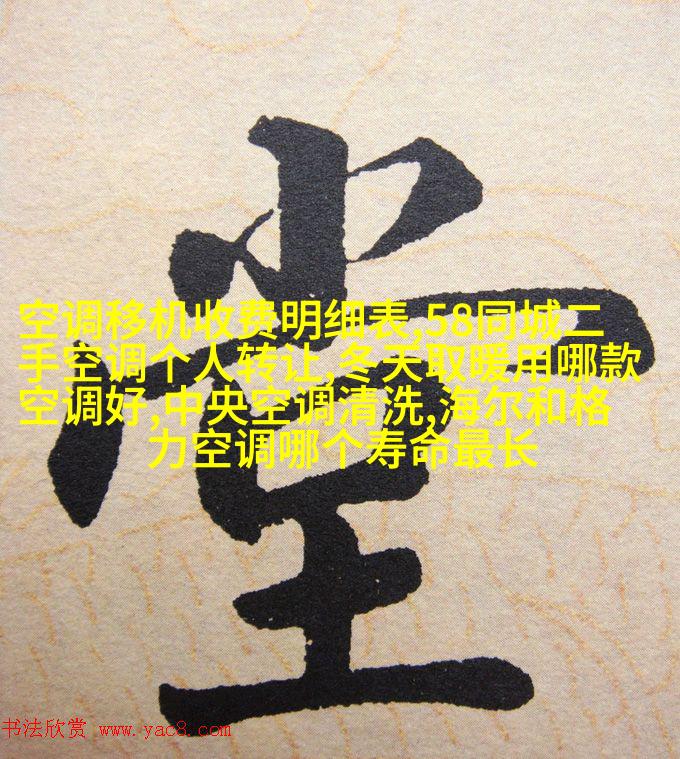 堂
空调移机收费明细表,58同城二
手空调个人转让,冬天取暖用哪款
空调好,中央空调清洗,海尔和格
力空调哪个寿命最长
书法欣赏 www.yac8.com